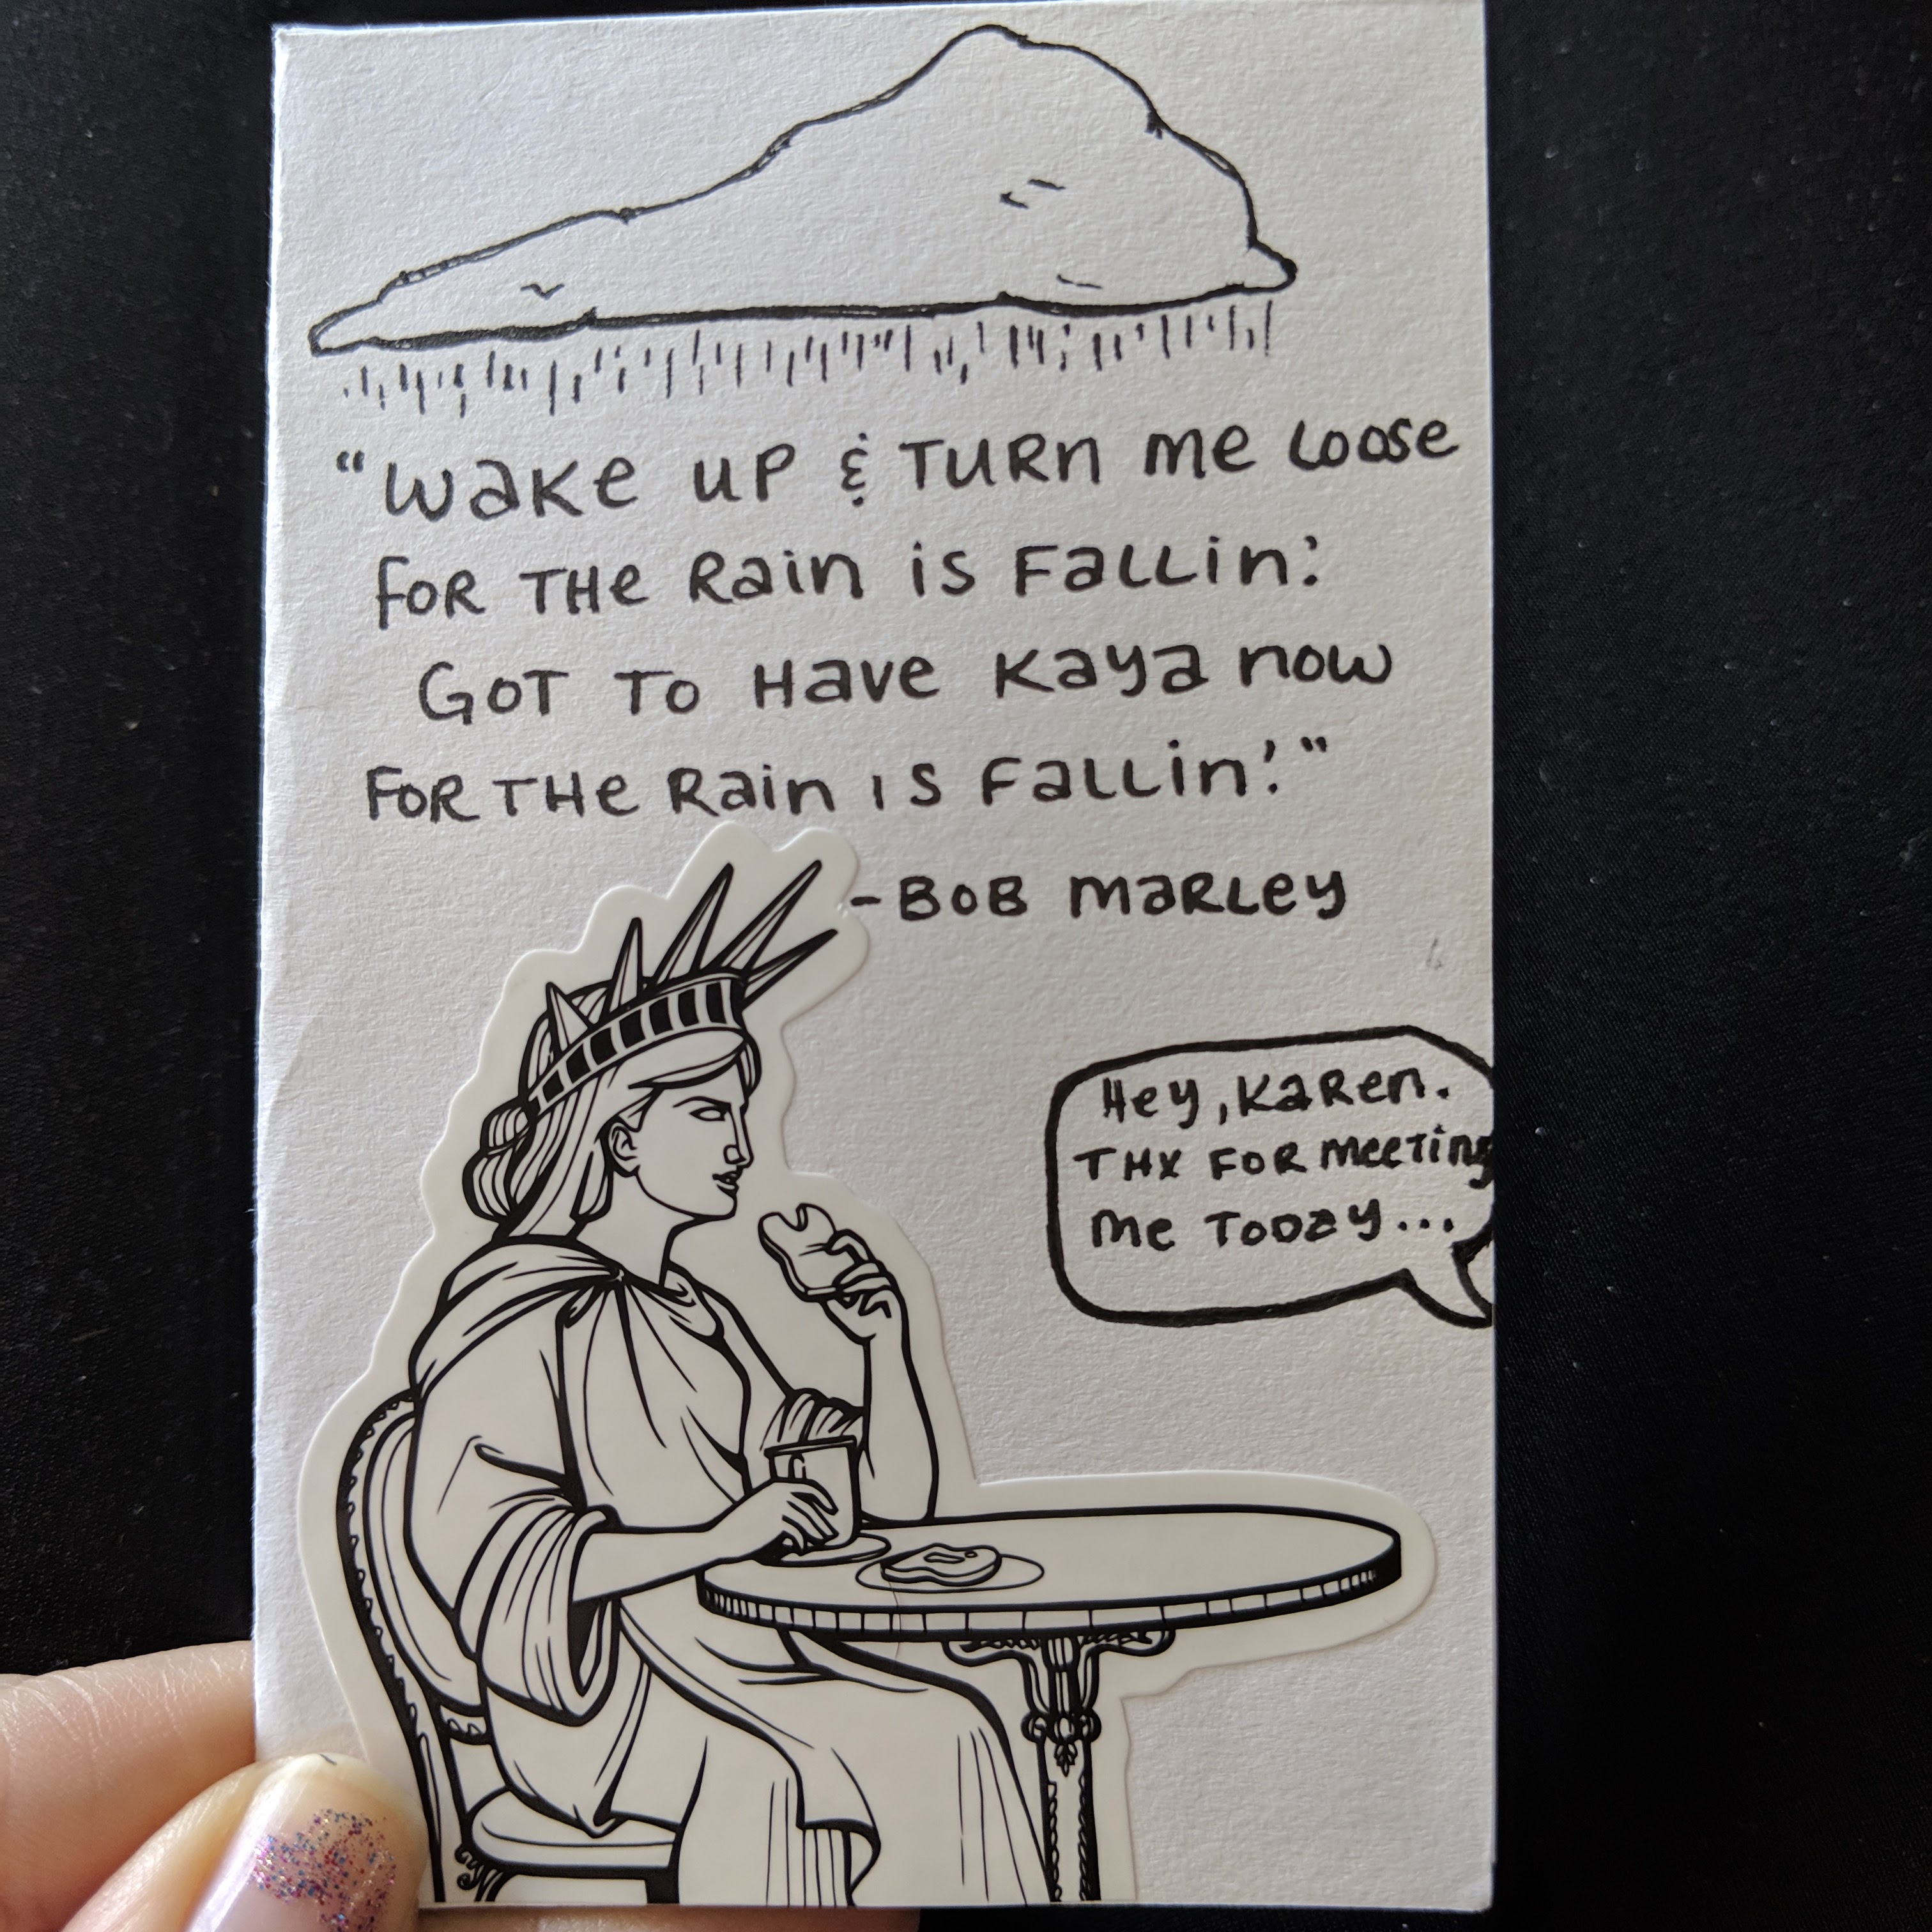 "Wake up & TURn me Loose
FOR THe Rain is Fallin'.
GOT TO Have Kaya now
FOR THe Rain is Fallin'."
-BOB maRLey
Hey, KaRen.
THX FOR meeTing
me TODay...